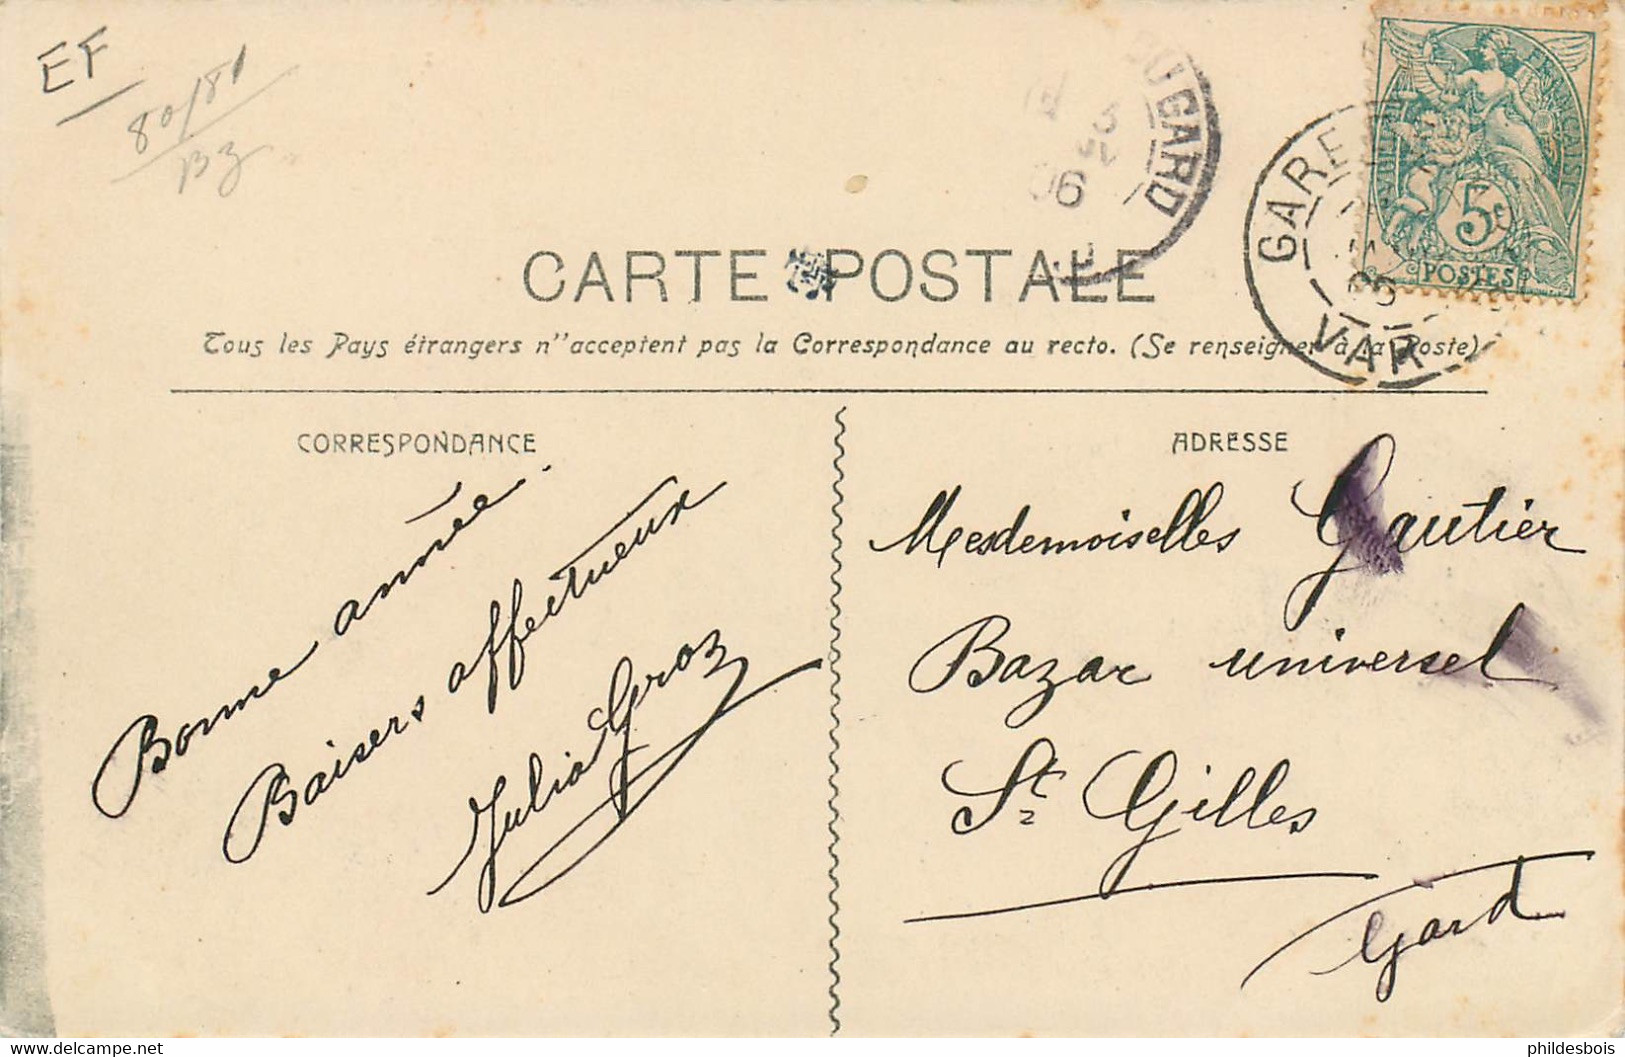 EF
80/81
BZ
DU GARD
3
06
GARE
VAR
RÉPUBLIQUE FRANÇAISE
5c
POSTES
CARTE POSTALE
Tous les Pays étrangers n"acceptent pas la Correspondance au recto. (Se renseigner à la Poste)
CORRESPONDANCE
Bonne année.
Baisers affectueux
Julia Groz
ADRESSE
Mesdemoiselles Gautier
Bazar universel
St Gilles
Gard
phildesbois